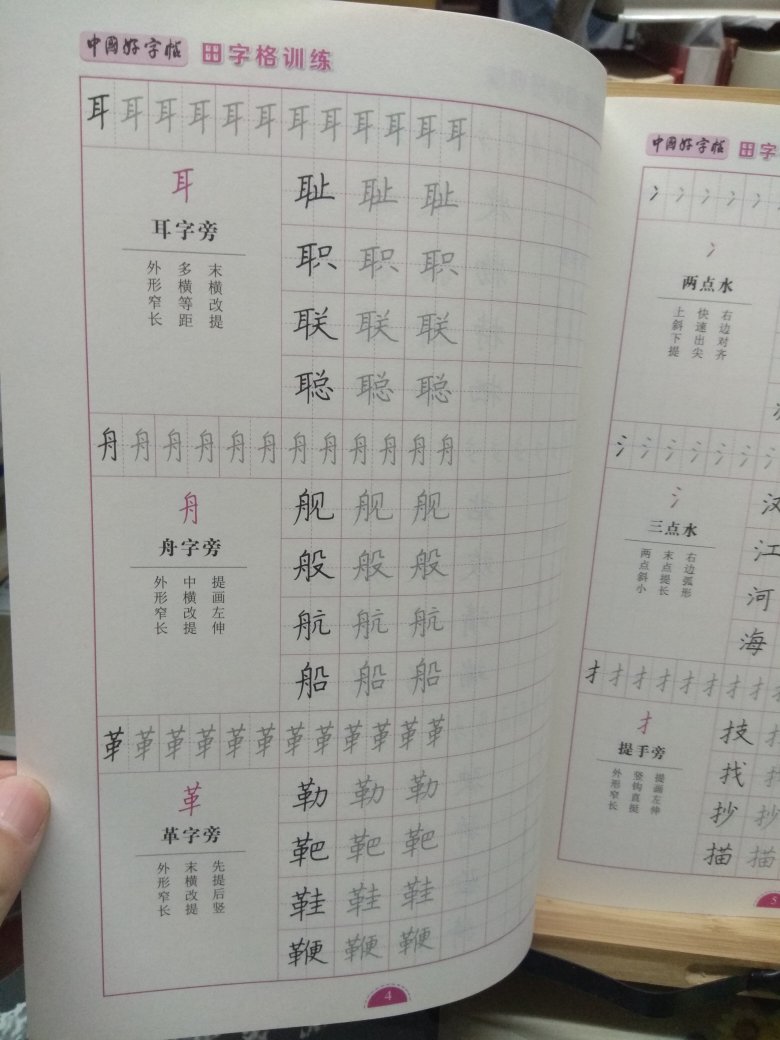 中国好字帖 田字格训练
耳 耳 耳 耳 耳 耳 耳 耳 耳 耳 耳 耳
耳
耳字旁
外形窄长
多横等距
末横改提
耻 耻 耻
职 职 职
联 联 联
聪 聪 聪
舟 舟 舟 舟 舟 舟 舟 舟 舟 舟 舟 舟
舟
舟字旁
外形窄长
中横改提
提画左伸
舰 舰 舰
般 般 般
航 航 航
船 船 船
革 革 革 革 革 革 革 革 革 革 革 革
革
革字旁
外形窄长
末横改提
先提后竖
勒 勒 勒
靶 靶 靶
鞋 鞋 鞋
鞭 鞭 鞭
4
中国好字帖 田字
冫 冫 冫 冫 冫 冫
冫
两点水
上斜下提
快速出尖
右边对齐
氵 氵 氵 氵 氵 氵 氵
氵
三点水
两点斜小
末点提长
右边弧形
汉
江
河
海
扌 扌 扌 扌 扌 扌 扌 扌
扌
提手旁
外形窄长
竖钩直挺
提画左伸
技
找
抄 抄
描 描
5